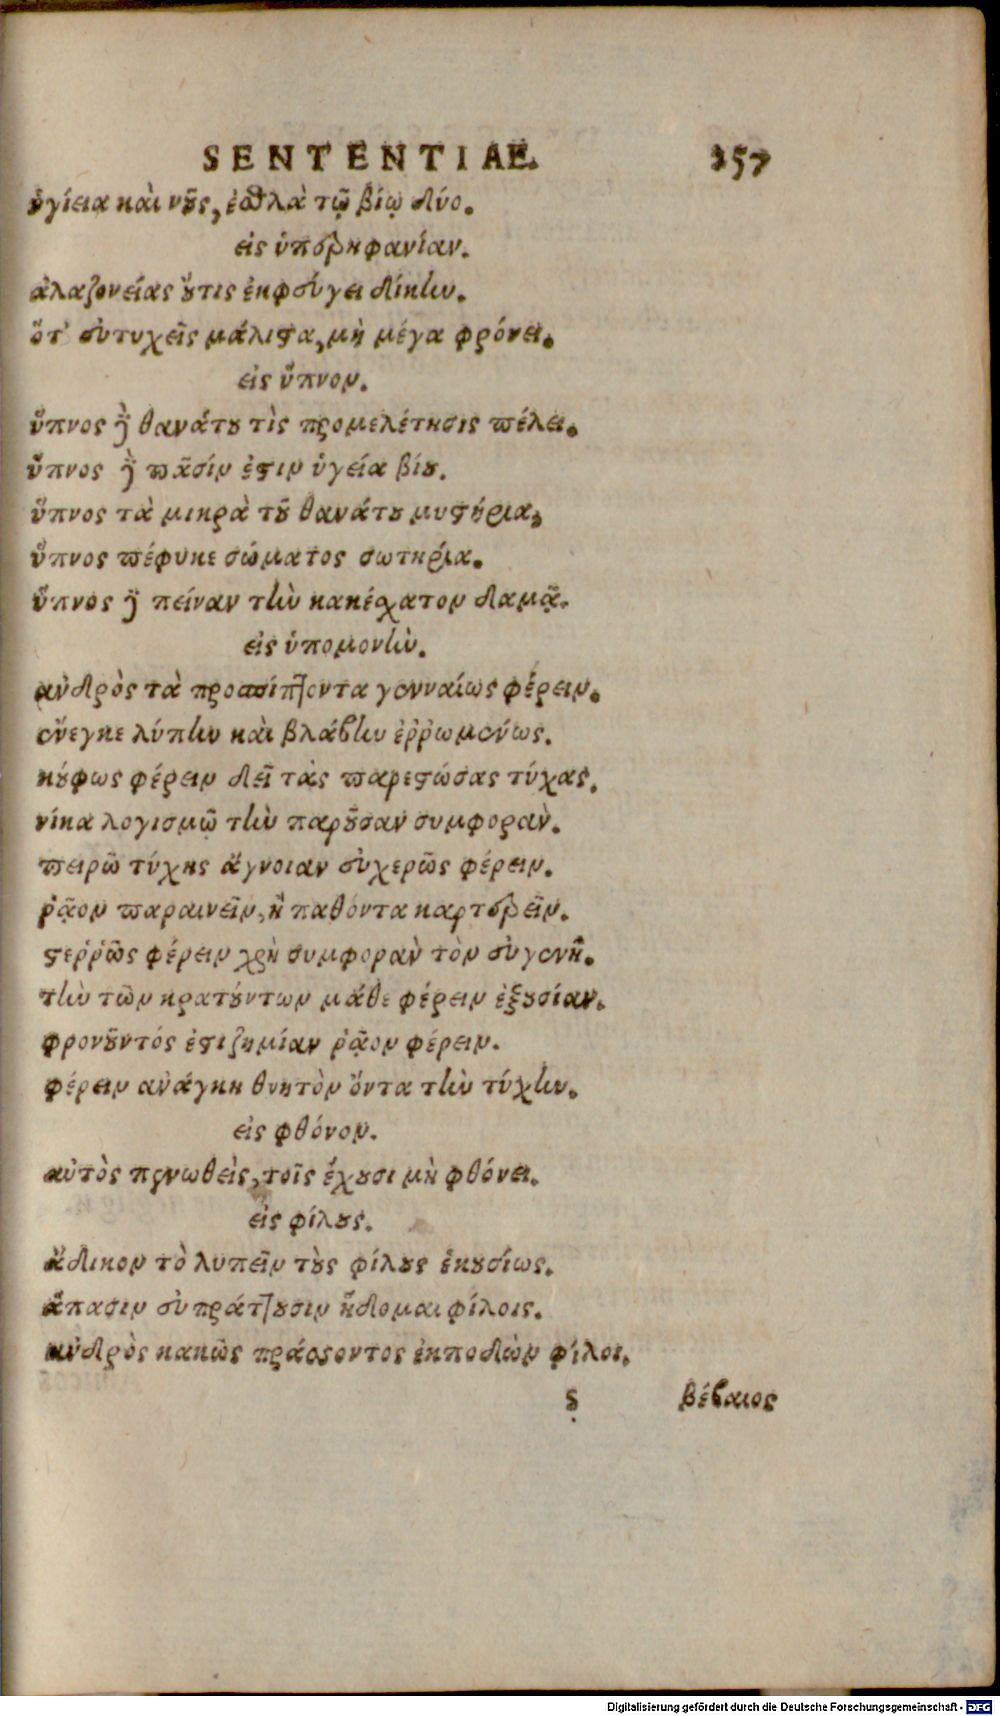 SENTENTIAE. 257
ὑγίεια καὶ νοῦς, ἐσθλὰ τῷ βίῳ δύο.
εἰς ὑπερηφανίαν.
ἀλαζονείας οὔτις ἐκφεύγει δίκην.
ὅτ' εὐτυχεῖς μάλιστα, μὴ μέγα φρόνει.
εἰς ὕπνον.
ὕπνος δὲ θανάτου τὶς προμελέτησις πέλει.
ὕπνος δὲ πᾶσίν ἐστιν ὑγεία βίου.
ὕπνος τὰ μικρὰ τοῦ θανάτου μυστήρια,
ὕπνος πέφυκε σώματος σωτηρία.
ὕπνος δὲ πείναν τὴν κακέσχατον δαμᾷ.
εἰς ὑπομονὴν.
ἀνδρὸς τὰ προσπίπτοντα γενναίως φέρειν.
ἔνεγκε λύπην καὶ βλάβην ἐῤῥωμένως.
κούφως φέρειν δεῖ τὰς παρεστώσας τύχας.
νίκα λογισμῷ τὴν παροῦσαν συμφορὰν.
πειρῶ τύχης ἄγνοιαν εὐχερῶς φέρειν.
ῥᾷον παραινεῖν, ἢ παθόντα καρτερεῖν.
στεῤῥῶς φέρειν χρὴ συμφορὰν τὸν εὐγενῆ.
τὴν τῶν κρατούντων μάθε φέρειν ἐξουσίαν.
φρονοῦντός ἐστι ζημίαν ῥᾷον φέρειν.
φέρειν ἀνάγκη θνητὸν ὄντα τὴν τύχην.
εἰς φθόνον.
αὐτὸς πενωθεὶς, τοῖς ἔχουσι μὴ φθόνει.
εἰς φίλους.
ἄδικον τὸ λυπεῖν τοὺς φίλους ἑκουσίως.
ἅπασιν εὐπράττουσιν ἥδομαι φίλοις.
ἀνδρὸς κακῶς πράσσοντος ἐκποδὼν φίλοι.
S βέβαιος
Digitalisierung gefördert durch die Deutsche Forschungsgemeinschaft - DFG